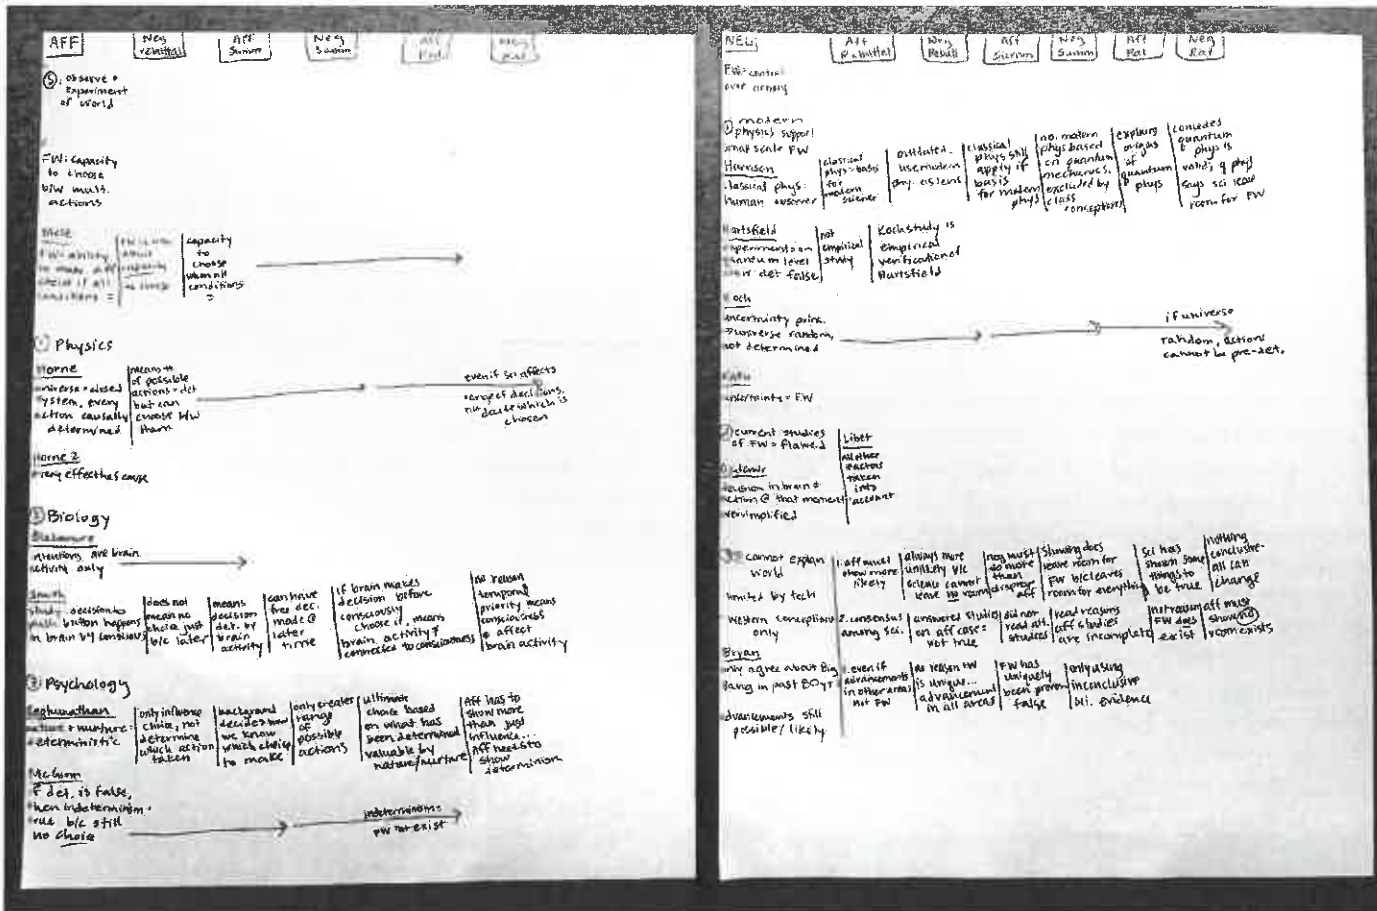 AFF
Neg rebuttal
Aff Summ
Neg Summ
S: observe +
experiment
of world
FW: capacity
to choose
b/w mult.
actions
capacity
to
choose
when all
conditions
=
① Physics
Horne
universe = closed
system, every
action causally
determined
means #
of possible
actions = det
but can
choose b/w
them
even if sci affects
range of decisions,
not decide which is
chosen
Horne 2
every effect has cause
② Biology
intentions are brain
activity only
Smith
study: decision to
push button happens
in brain b/f conscious
does not
mean no
choice just
b/c later
means
decision
det. by
brain
activity
can have
free dec.
made @
later
time
if brain makes
decision before
consciously
choose it, means
brain activity ≠
connected to consciousness
no reason
temporal
priority means
consciousness
≠ affect
brain activity
③ Psychology
nature + nurture =
deterministic
only influence
choice, not
determine
which action
taken
background
decides how
we know
which choice
to make
only creates
range
of
possible
actions
ultimate
choice based
on what has
been determined
valuable by
nature/nurture
Aff has to
show more
than just
influence...
Aff needs to
show
determinism
McGinn
if det. is false,
then indeterminism =
true b/c still
no choice
indeterminism =
FW not exist
NEG
Aff Rebuttal
Neg Rebutt
Aff Summ
Neg Summ
Aff Rat
Neg Rat
FW: control
over actions
① modern
physics support
small scale FW
Harrison
classical phys:
human observer
classical
phys = basis
for
modern
science
outdated.
use modern
phy. as lens
classical
phys still
apply if
basis
for modern
phys
no, modern
phys based
on quantum
mechanics,
excluded by
class
conceptions
explains
origins
of
quantum
phys
concedes
quantum
phys is
valid; q phys
says sci leave
room for FW
Hartsfield
experiment on
quantum level
show det false
not
empirical
study
Koch study is
empirical
verification of
Hartsfield
Koch
uncertainty princ.
→ universe random,
not determined
if universe
random, actions
cannot be pre-det.
uncertainty = FW
② current studies
of FW = flawed
decision in brain ≠
action @ that moment
oversimplified
Libet
all other
factors
taken
into
account
③ cannot explain
world
limited by tech
western conceptions
only
1. aff must
show more
likely
always more
unlikely b/c
science cannot
leave no room
neg must
do more
than
disprove
aff
showing does
leave room for
FW b/c leaves
room for everything
sci has
shown some
things to
be true
nothing
conclusive-
all can
change
2. consensus
among sci.
answered studies
on aff case =
not true
did not
read all
studies
read reasons
aff studies
are incomplete
not reason
FW does
exist
aff must
show no
room exists
Bryan
only agree about Big
Bang in past 50 yr
advancements still
possible / likely
1. even if
advancements
in other areas
not FW
no reason FW
is unique...
advancement
in all areas
FW has
uniquely
been proven
false
only using
inconclusive
sci. evidence